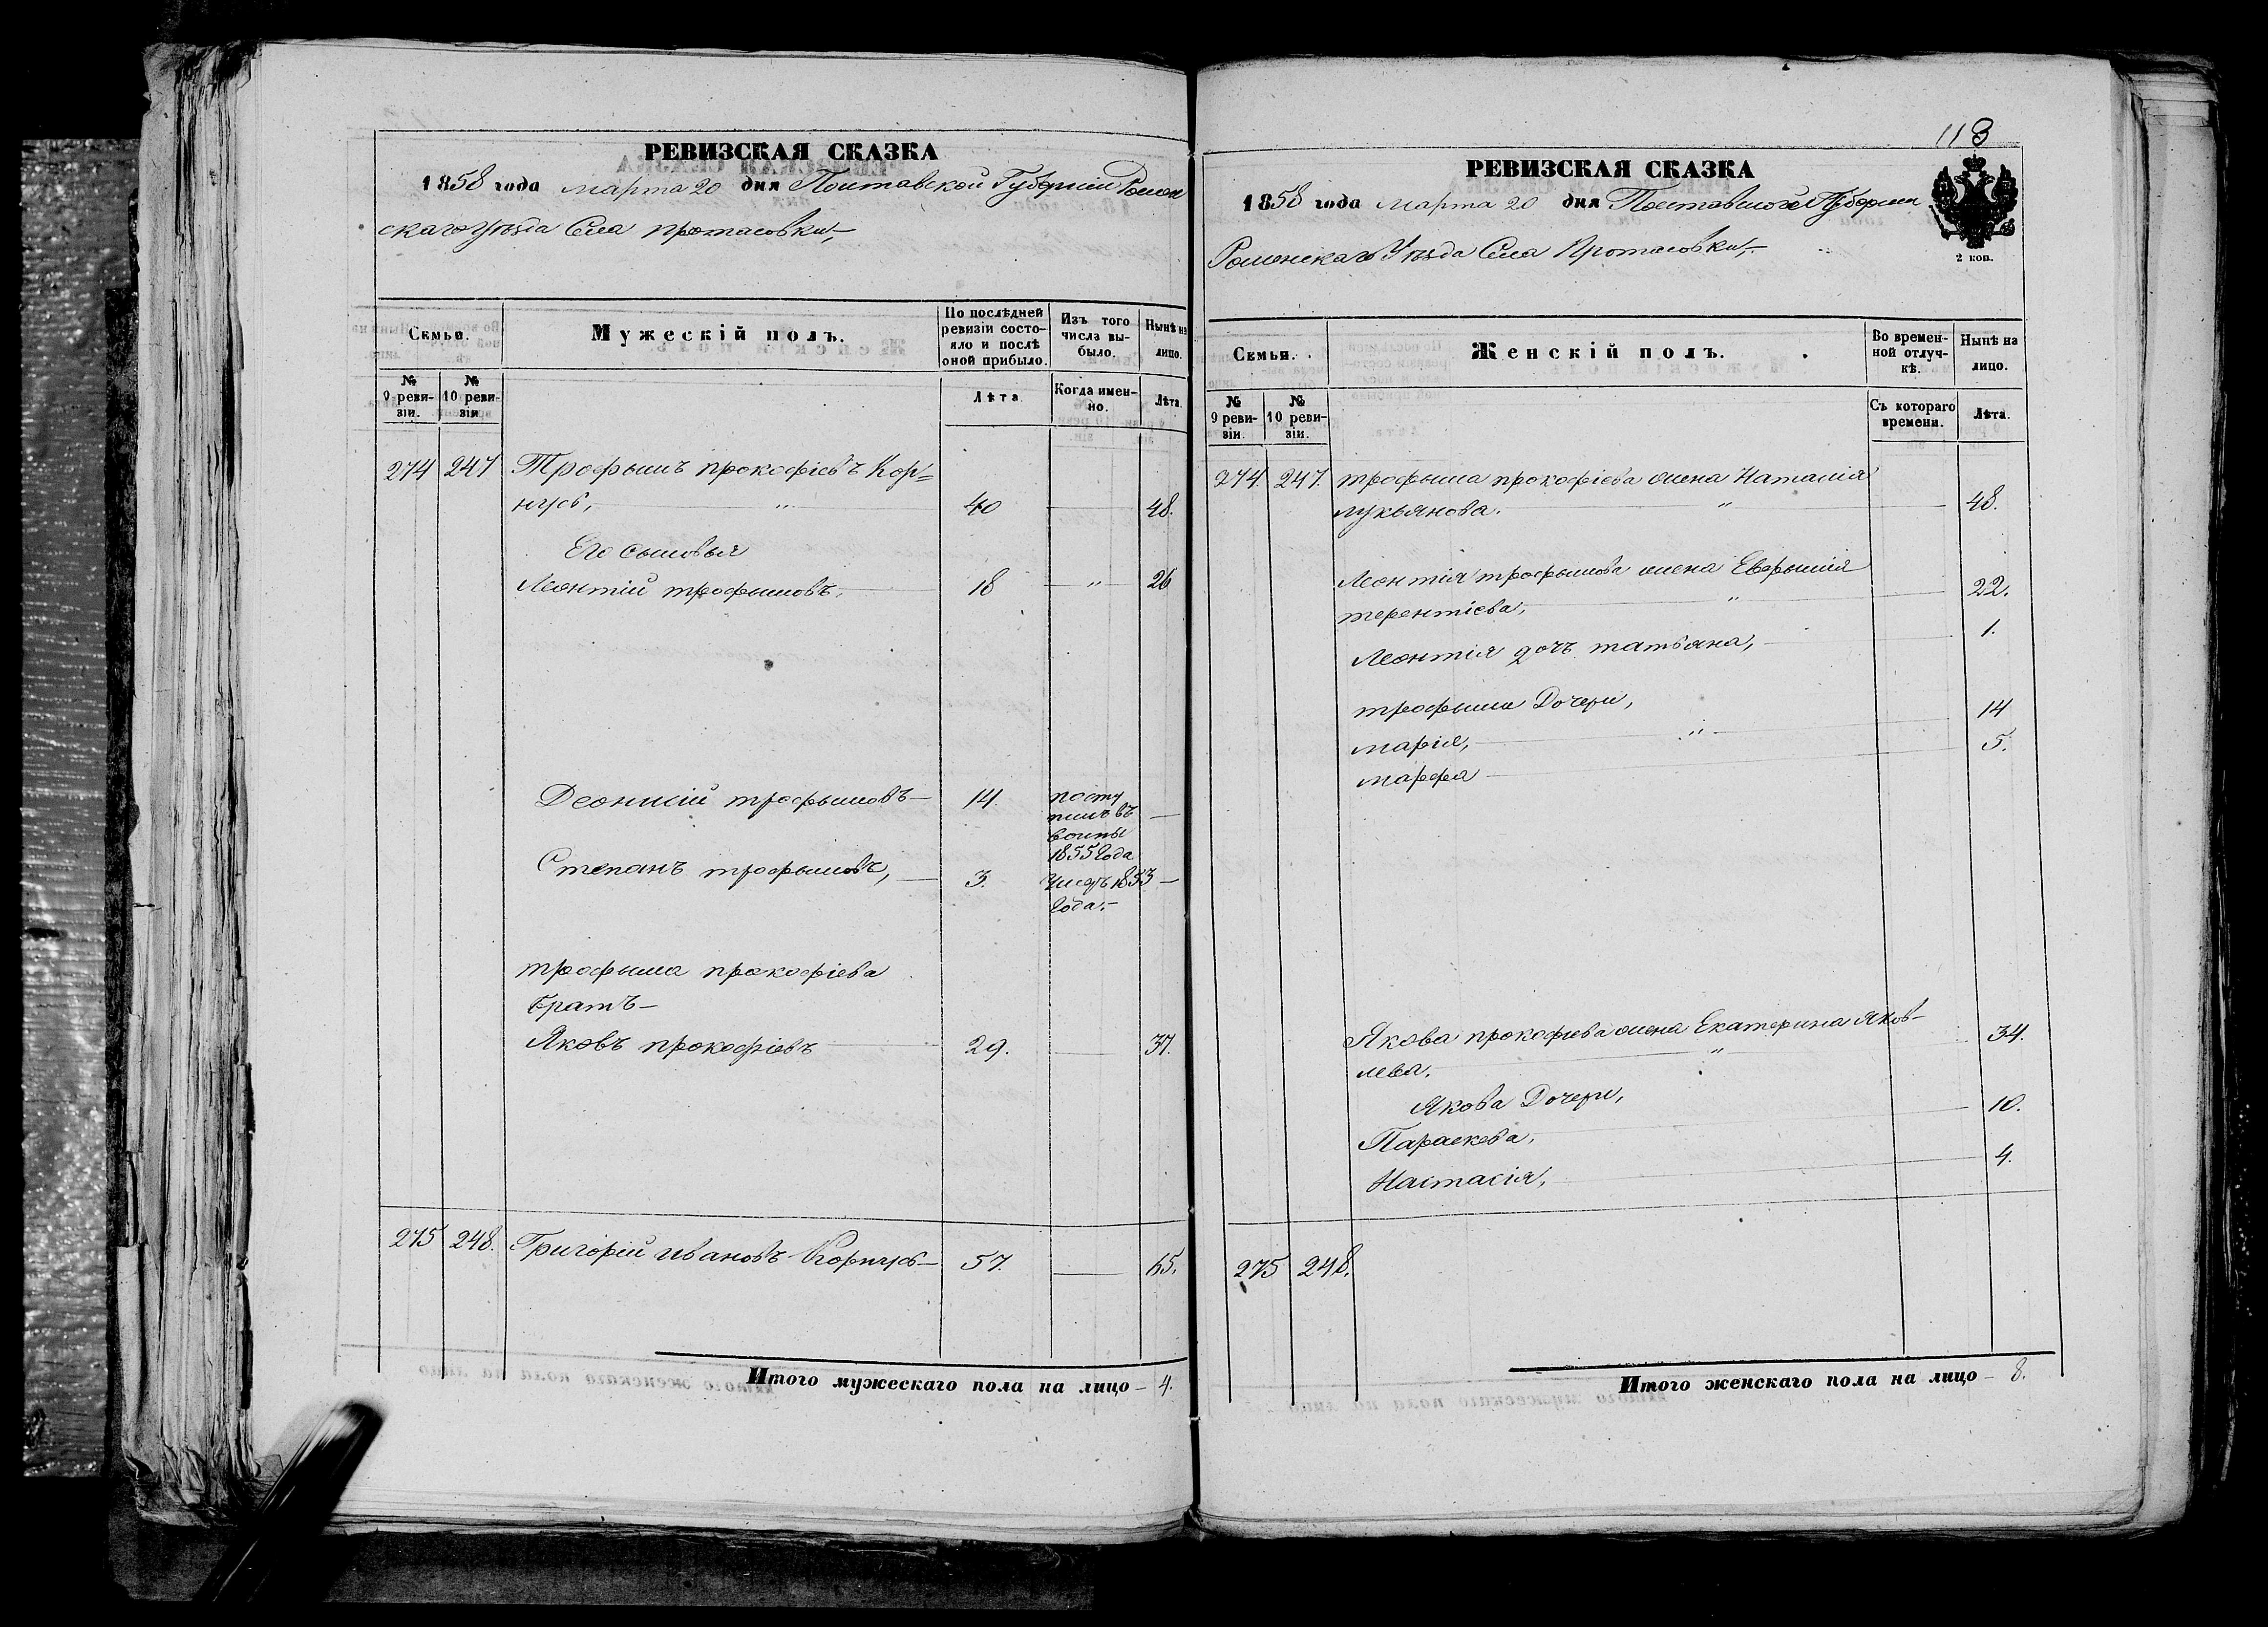 РЕВИЗСКАЯ СКАЗКА
1858 года марта 20 дня Полтавской Губерніи Ромен
скаго Уѣзда Села протасовки,
Семьи.
Мужескій полъ.
По послѣдней ревизіи состояло и послѣ оной прибыло.
Изъ того числа выбыло.
Нынѣ на лицо.
№ 9 ревизіи.
№ 10 ревизіи
Лѣта
Когда именно.
Лѣта.
274 247 Трофымъ прокофіевъ Кор=
нусь, " 40 48.
Его сыновья
Леонтій трофымовъ, 18 " 26
трофымовъ 14. посту
пилъ въ
1855 года
Степанъ трофымовъ, 3. Умеръ 1853
года.
трофыма прокофіева
братъ
Яковъ прокофіевъ 29. 37.
275 248. Григорій ивановъ 57. 65.
Итого мужескаго пола на лицо 4.
113
РЕВИЗСКАЯ СКАЗКА
1858 года марта 20 дня Полтавской Губерніи
Роменскаго Уѣзда Села Протасовки,
2 коп.
Семьи.
Женскій полъ.
Во временной отлучкѣ.
Нынѣ на лицо.
№ 9 ревизіи.
№ 10 ревизіи.
Съ котораго времени.
Лѣта.
274. 247. трофыма прокофіева жена Наталія
лукьянова. " 48.
Леонтія трофымова жена Евфымія
терентіева, " 22.
Леонтія дочъ татьяна, 1.
трофыма Дочери,
марія, " 14
марфа 5.
Якова прокофіева жена Екатерина яков-
лева. " 34.
Якова Дочери,
Параскева, 10.
Настасія, 4.
275 248.
Итого женскаго пола на лицо 8.